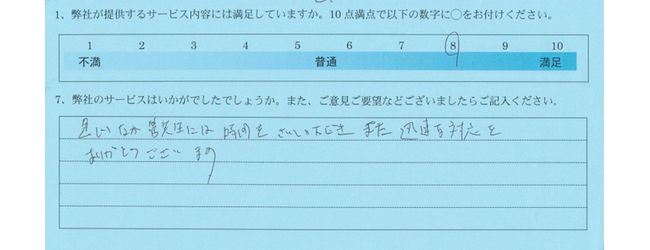 1、弊社が提供するサービス内容には満足していますか。10 点満点で以下の数字に○をお付けください。
1 2 3 4 5 6 7 8 9 10
不満 普通 満足
7、弊社のサービスはいかがでしたでしょうか。また、ご意見ご要望などございましたらご記入ください。
忙しいなか 先生には 時間を さいていただき また 迅速な対応を
ありがとうございます